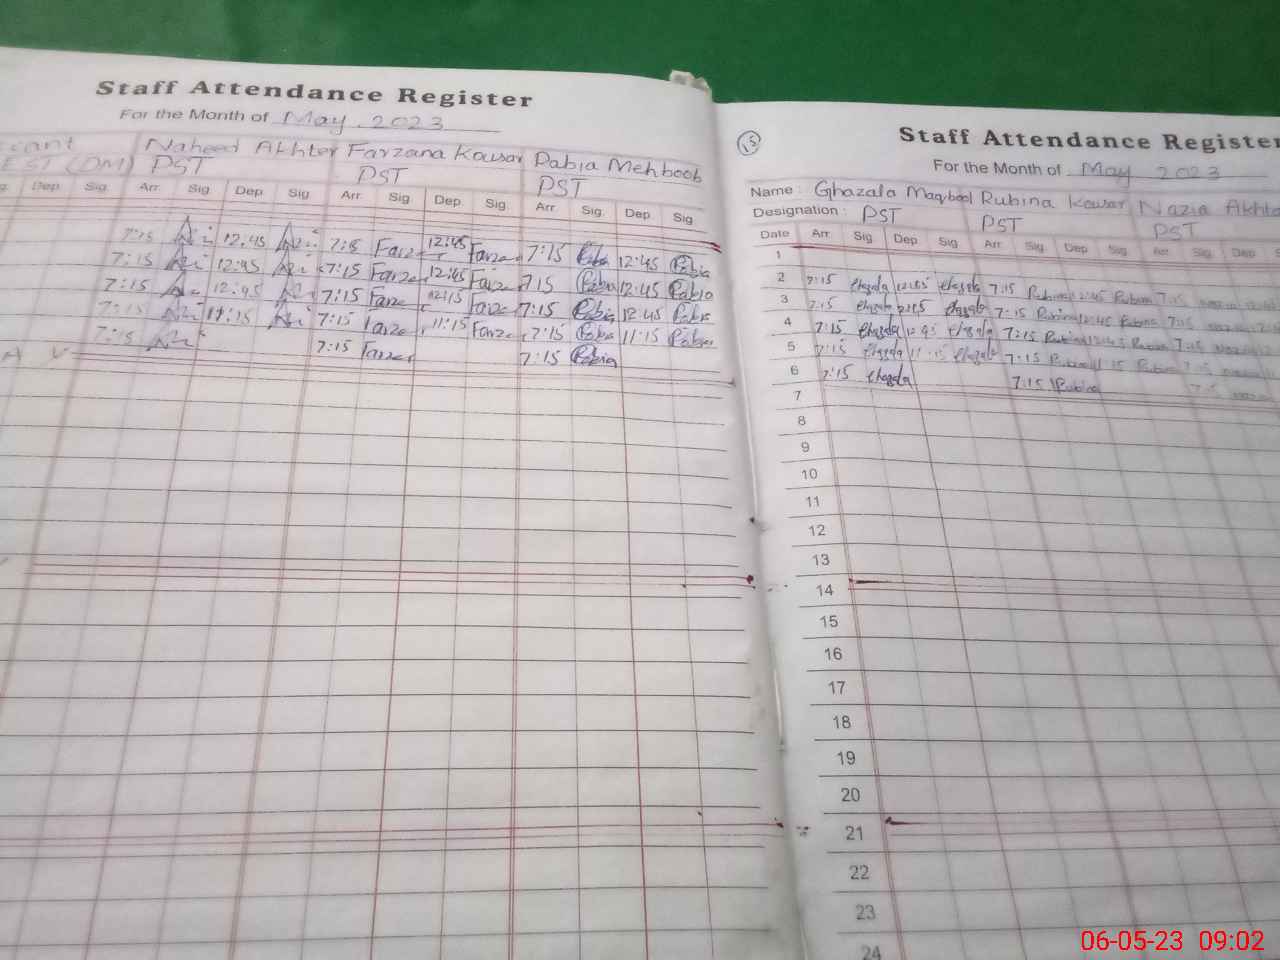 Staff Attendance Register
For the Month of May 2023
Naheed Akhter Farzana Kousar Rabia Mehboob
EST (DM) PST PST PST
Dep. Sig. Arr. Sig. Dep. Sig. Arr. Sig. Dep. Sig. Arr. Sig. Dep. Sig.
7:15 12:45 7:15 Farza 12:45 Farza 7:15 Rabia 12:45 Rabia
7:15 12:45 7:15 Farza 12:45 Farza 7:15 Rabia 12:45 Rabia
7:15 12:45 7:15 Farza Farza 7:15 Rabia 12:45 Rabia
7:15 11:15 7:15 Farza 11:15 Farza 7:15 Rabia 11:15 Rabia
7:15 7:15 Farza 7:15 Rabia
15
Staff Attendance Register
For the Month of May 2023
Name : Ghazala Maqbool Rubina Kousar Nazia Akhta
Designation : PST PST PST
Date Arr. Sig. Dep. Sig. Arr. Sig. Dep. Sig. Arr. Sig. Dep
1
2 7:15 Ghazala 12:45 Ghazala 7:15 Rubina 12:45 Rubina 7:15
3 7:15 Ghazala 12:45 Ghazala 7:15 Rubina 12:45 Rubina 7:15
4 7:15 Ghazala 12:45 Ghazala 7:15 Rubina 12:45 Rubina 7:15
5 7:15 Ghazala 11:15 Ghazala 7:15 Rubina 11:15 Rubina 7:15
6 7:15 Ghazala 7:15 Rubina 7:15
7
8
9
10
11
12
13
14
15
16
17
18
19
20
21
22
23
24
06-05-23 09:02